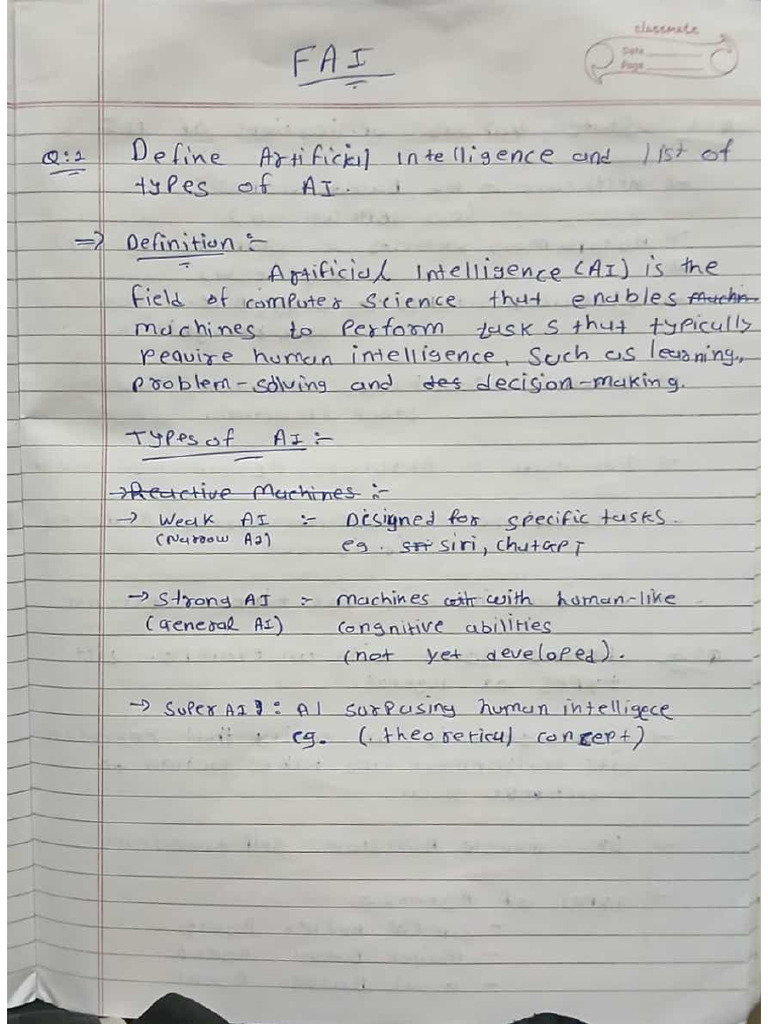 classmate
Date
Page
FAI
Q:1 Define Artificial Intelligence and list of
types of AI.
=> Definition :-
Artificial Intelligence (AI) is the
field of computer science that enables machin
machines to perform tasks that typically
require human intelligence, such as learning,
problem-solving and des decision-making.
Types of AI :-
→ Reactive Machines :-
→ Weak AI :- Designed for specific tasks.
(Narrow AI) eg. sri siri, chatGPT
→ Strong AI :- machines with with human-like
(General AI) congnitive abilities
(not yet developed).
→ Super AI : AI surpasing human intelligece
eg. (theoretical concept)